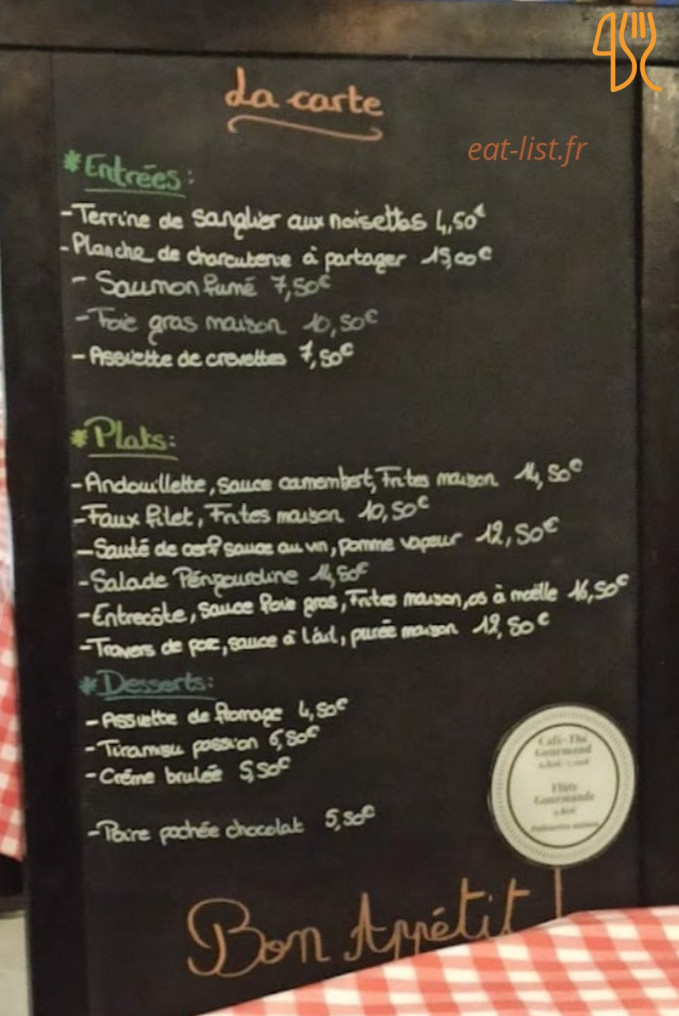 La carte
eat-list.fr
*Entrées:
-Terrine de sanglier aux noisettes 4,50€
-Planche de charcuterie à partager 15,00€
- Saumon fumé 7,50€
-Foie gras maison 10,50€
-Assiette de crevettes 7,50€
*Plats:
-Andouillette, sauce camembert, Frites maison 14,50€
-Faux filet, Frites maison 10,50€
-Sauté de cerf sauce au vin, pomme vapeur 12,50€
-Salade Périgourdine 14,50€
-Entrecôte, sauce foie gras, Frites maison, os à moëlle 16,50€
-Travers de porc, sauce à l'ail, purée maison 12,50€
*Desserts:
-Assiette de fromage 4,50€
-Tiramisu passion 6,50€
-Crème brulée 5,50€
-Poire pochée chocolat 5,50€
Café-Thé
Gourmand
Flûte
Gourmande
Bon Appétit !